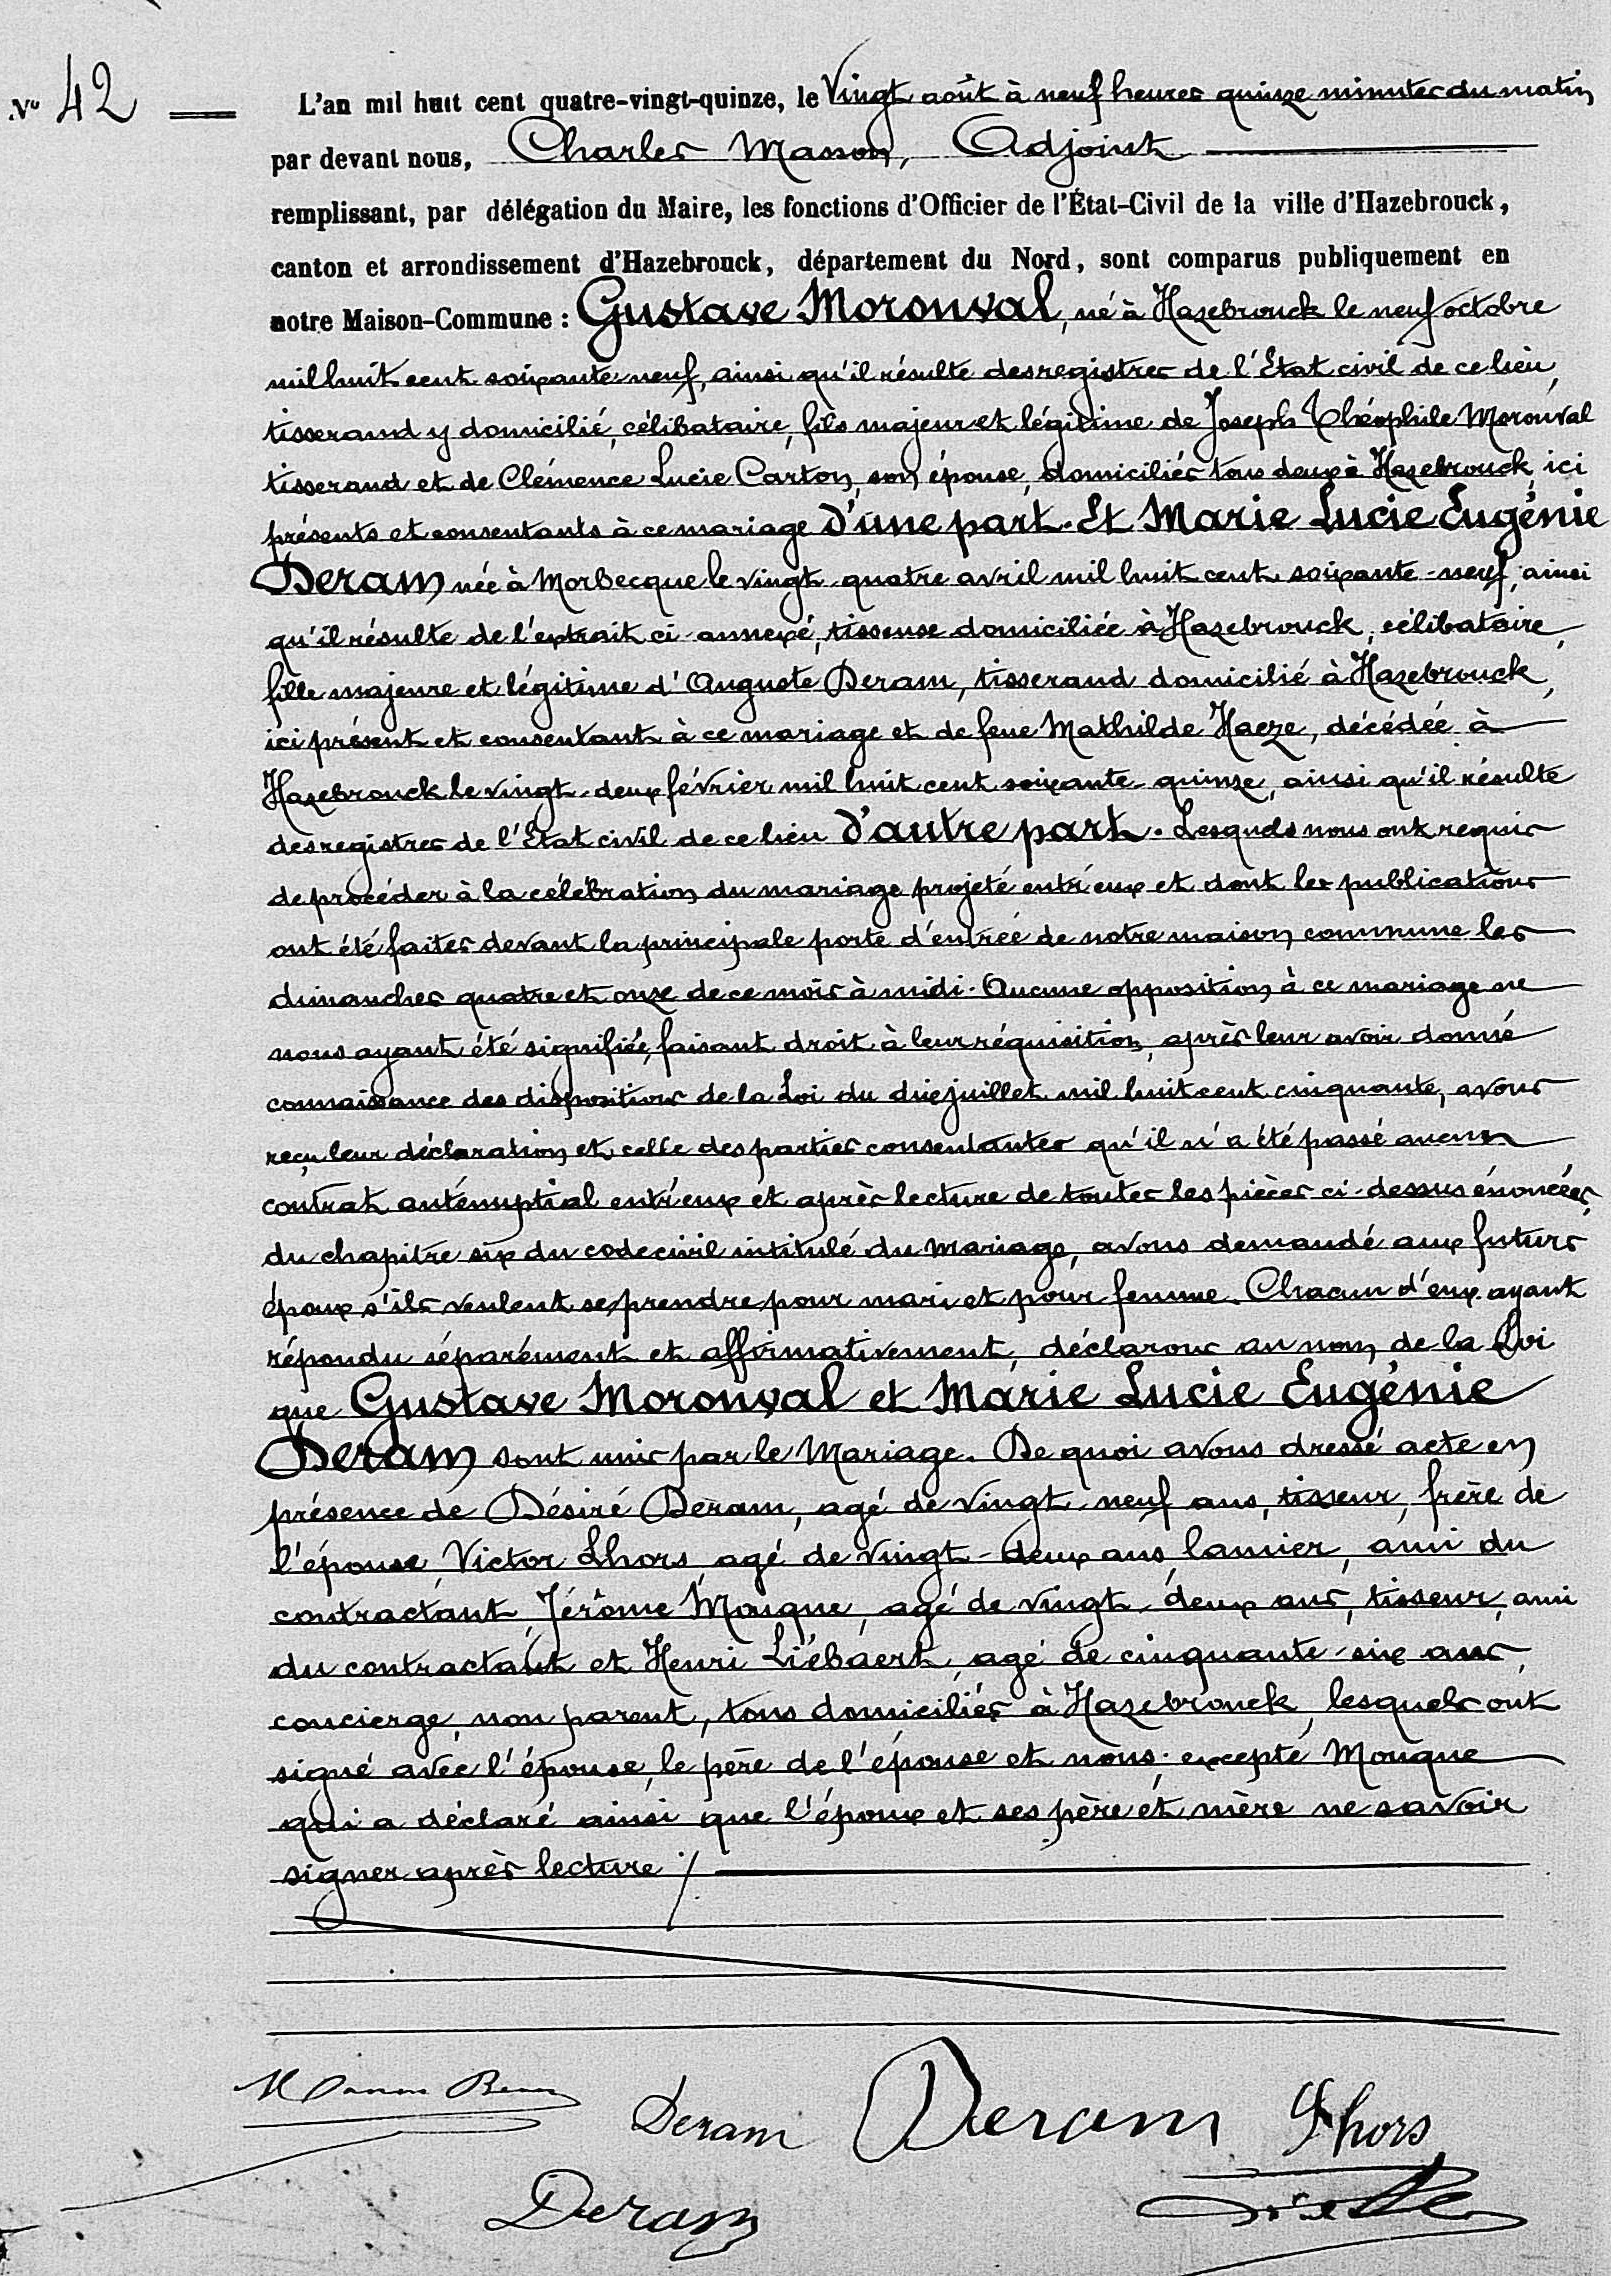 N° 42
L'an mil huit cent quatre-vingt-quinze, le Vingt août à neuf heures quinze minutes du matin
par devant nous, Charles Masson, Adjoint
remplissant, par délégation du Maire, les fonctions d'Officier de l'État-Civil de la ville d'Hazebrouck,
canton et arrondissement d'Hazebrouck, département du Nord, sont comparus publiquement en
notre Maison-Commune : Gustave Moronval, né à Hazebrouck le neuf octobre
mil huit cent soixante neuf, ainsi qu'il résulte des registres de l'Etat civil de ce lieu,
tisserand y domicilié, célibataire, fils majeur et légitime de Joseph Théophile Moronval
tisserand et de Clémence Lucie Carton, son épouse, domiciliés tous deux à Hazebrouck, ici
présents et consentants à ce mariage d'une part. Et Marie Lucie Eugénie
Deram née à Morbecque le vingt-quatre avril mil huit cent soixante-neuf, ainsi
qu'il résulte de l'extrait ci-annexé, tisseuse domiciliée à Hazebrouck, célibataire,
fille majeure et légitime d'Auguste Deram, tisserand domicilié à Hazebrouck,
ici présent et consentant à ce mariage et de feue Mathilde Haeze, décédée à
Hazebrouck le vingt-deux février mil huit cent soixante-quinze, ainsi qu'il résulte
des registres de l'Etat civil de ce lieu d'autre part. Lesquels nous ont requis
de procéder à la célébration du mariage projeté entr'eux et dont les publications
ont été faites devant la principale porte d'entrée de notre maison commune les
dimanches quatre et onze de ce mois à midi. Aucune opposition à ce mariage ne
nous ayant été signifiée, faisant droit à leur réquisition, après leur avoir donné
connaissance des dispositions de la Loi du dix juillet mil huit cent cinquante, avons
reçu leur déclaration et celle des parties consentantes qu'il n'a été passé aucun
contrat anténuptial entr'eux et après lecture de toutes les pièces ci-dessus énoncées,
du chapitre six du code civil intitulé du Mariage, avons demandé aux futurs
époux s'ils veulent se prendre pour mari et pour femme. Chacun d'eux ayant
répondu séparément et affirmativement, déclarons au nom de la Loi
que Gustave Moronval et Marie Lucie Eugénie
Deram sont unis par le Mariage. De quoi avons dressé acte en
présence de Désiré Deram, agé de vingt-neuf ans, tisseur, frère de
l'épouse, Victor Lhors, agé de vingt-deux ans, lamier, ami du
contractant, Jérôme Mouque, agé de vingt-deux ans, tisseur, ami
du contractant et Henri Liébaert, agé de cinquante-six ans,
concierge, non parent, tous domiciliés à Hazebrouck, lesquels ont
signé avec l'épouse, le père de l'épouse et nous. excepté Mouque
qui a déclaré ainsi que l'époux et ses père et mère ne savoir
signer après lecture ./
Deram Deram Lhors
Deram